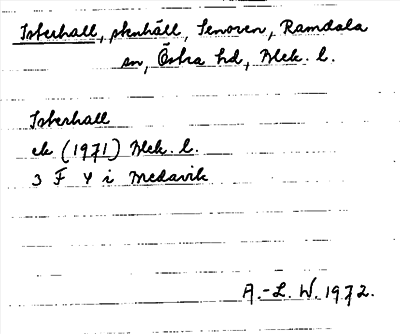 Isterhall, stenhäll, Senoren, Ramdala
sn, Östra hd, Blek. l.
Isterhall
ek (1971) Blek. l.
3 F 4 i Medavik
A.-L. W. 1972.